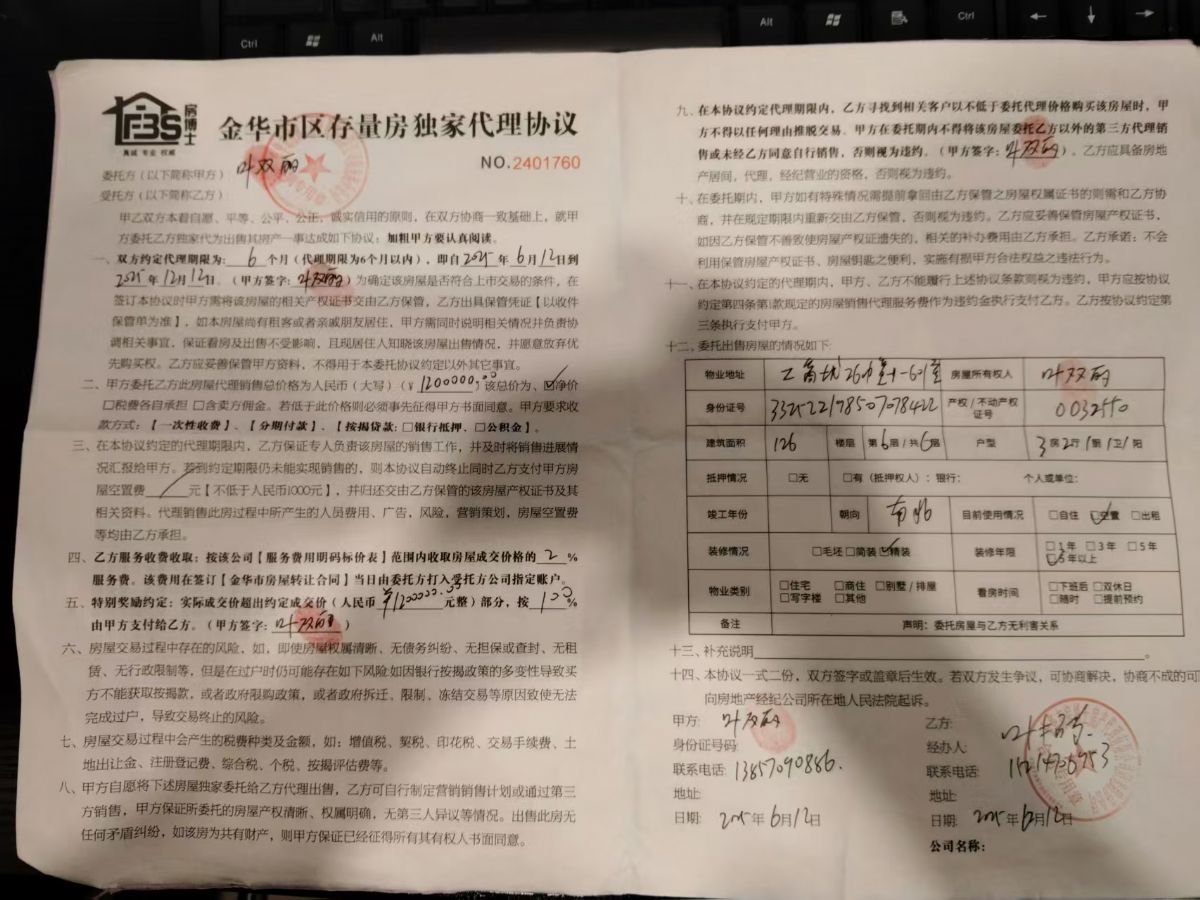 Ctrl
Alt
Alt
Ctrl
FBS
房博士
真诚 专业 权威
金华市区存量房独家代理协议
NO.2401760
委托方（以下简称甲方） 叶双丽
受托方（以下简称乙方）
甲乙双方本着自愿、平等、公平、公正，诚实信用的原则，在双方协商一致基础上，就甲
方委托乙方独家代为出售其房产一事达成如下协议：加粗甲方要认真阅读。
一、双方约定代理期限为： 6 个月（代理期限为6个月以内），即自2025年6月12日到
2025年12月12日。（甲方签字：叶双丽）为确定该房屋是否符合上市交易的条件，在
签订本协议时甲方需将该房屋的相关产权证书交由乙方保管，乙方出具保管凭证【以收件
保管单为准】，如本房屋尚有租客或者亲戚朋友居住，甲方需同时说明相关情况并负责协
调相关事宜，保证看房及出售不受影响，且现居住人知晓该房屋出售情况，并愿意放弃优
先购买权。乙方应妥善保管甲方资料，不得用于本委托协议约定以外其它事宜。
二、甲方委托乙方此房屋代理销售总价格为人民币（大写）（¥1200000.00该总价为、☑净价
□税费各自承担 □含卖方佣金。若低于此价格则必须事先征得甲方书面同意。甲方要求收
款方式：【一次性收费】、【分期付款】、【按揭贷款：□银行抵押、□公积金】。
三、在本协议约定的代理期限内，乙方保证专人负责该房屋的销售工作，并及时将销售进展情
况汇报给甲方。若到约定期限仍未能实现销售的，则本协议自动终止同时乙方支付甲方房
屋空置费 / 元【不低于人民币1000元】，并归还交由乙方保管的该房屋产权证书及其
相关资料。代理销售此房过程中所产生的人员费用、广告，风险，营销策划，房屋空置费
等均由乙方承担。
四、乙方服务收费收取：按该公司【服务费用明码标价表】范围内收取房屋成交价格的 2 %
服务费。该费用在签订【金华市房屋转让合同】当日由委托方打入受托方公司指定账户。
五、特别奖励约定：实际成交价超出约定成交价（人民币¥1200000.00元整）部分，按 100 %
由甲方支付给乙方。（甲方签字：叶双丽）
六、房屋交易过程中存在的风险，如，即使房屋权属清晰、无债务纠纷、无担保或查封、无租
赁、无行政限制等，但是在过户时仍可能存在如下风险:如因银行按揭政策的多变性导致买
方不能获取按揭款，或者政府限购政策，或者政府拆迁、限制、冻结交易等原因致使无法
完成过户，导致交易终止的风险。
七、房屋交易过程中会产生的税费种类及金额，如：增值税、契税、印花税、交易手续费、土
地出让金、注册登记费、综合税、个税、按揭评估费等。
八、甲方自愿将下述房屋独家委托给乙方代理出售，乙方可自行制定营销销售计划或通过第三
方销售，甲方保证所委托的房屋产权清晰、权属明确，无第三人异议等情况。出售此房无
任何矛盾纠纷，如该房为共有财产，则甲方保证已经征得所有其有权人书面同意。
九、在本协议约定代理期限内，乙方寻找到相关客户以不低于委托代理价格购买该房屋时，甲
方不得以任何理由推脱交易。甲方在委托期内不得将该房屋委托乙方以外的第三方代理销
售或未经乙方同意自行销售，否则视为违约。（甲方签字：叶双丽）。乙方应具备房地
产居间，代理，经纪营业的资格，否则视为违约。
十、在委托期内，甲方如有特殊情况需提前拿回由乙方保管之房屋权属证书的则需和乙方协
商，并在规定期限内重新交由乙方保管，否则视为违约。乙方应妥善保管房屋产权证书，
如因乙方保管不善致使房屋产权证遗失的，相关的补办费用由乙方承担。乙方承诺：不会
利用保管房屋产权证书、房屋钥匙之便利，实施有损甲方合法权益之违法行为。
十一、在本协议约定的代理期内，甲方、乙方不能履行上述协议条款则视为违约，甲方应按协议
约定第四条第1款规定的房屋销售代理服务费作为违约金执行支付乙方。乙方按协议约定第
三条执行支付甲方。
十二、委托出售房屋的情况如下：
物业地址 26 601室 房屋所有权人 叶双丽
身份证号 3325221978507078422 产权/不动产权证号 0032550
建筑面积 126 楼层 第6层/共6层 户型 3房2厅1厨1卫1阳
抵押情况 □无 □有（抵押权人）：银行： 个人或单位：
竣工年份 朝向 南北 目前使用情况 □自住 ☑空置 □出租
装修情况 □毛坯 □简装 ☑精装 装修年限 □1年 □3年 □5年 ☑5年以上
物业类别 □住宅 □商住 □别墅/排屋 □写字楼 □其他 看房时间 □下班后 □双休日 □随时 □提前预约
备注 声明：委托房屋与乙方无利害关系
十三、补充说明
十四、本协议一式二份，双方签字或盖章后生效。若双方发生争议，可协商解决，协商不成的可
向房地产经纪公司所在地人民法院起诉。
甲方: 叶双丽
身份证号码:
联系电话: 13857090886.
地址:
日期: 2025年6月12日
乙方:
经办人:
联系电话:
地址:
日期: 2025年6月12日
公司名称：